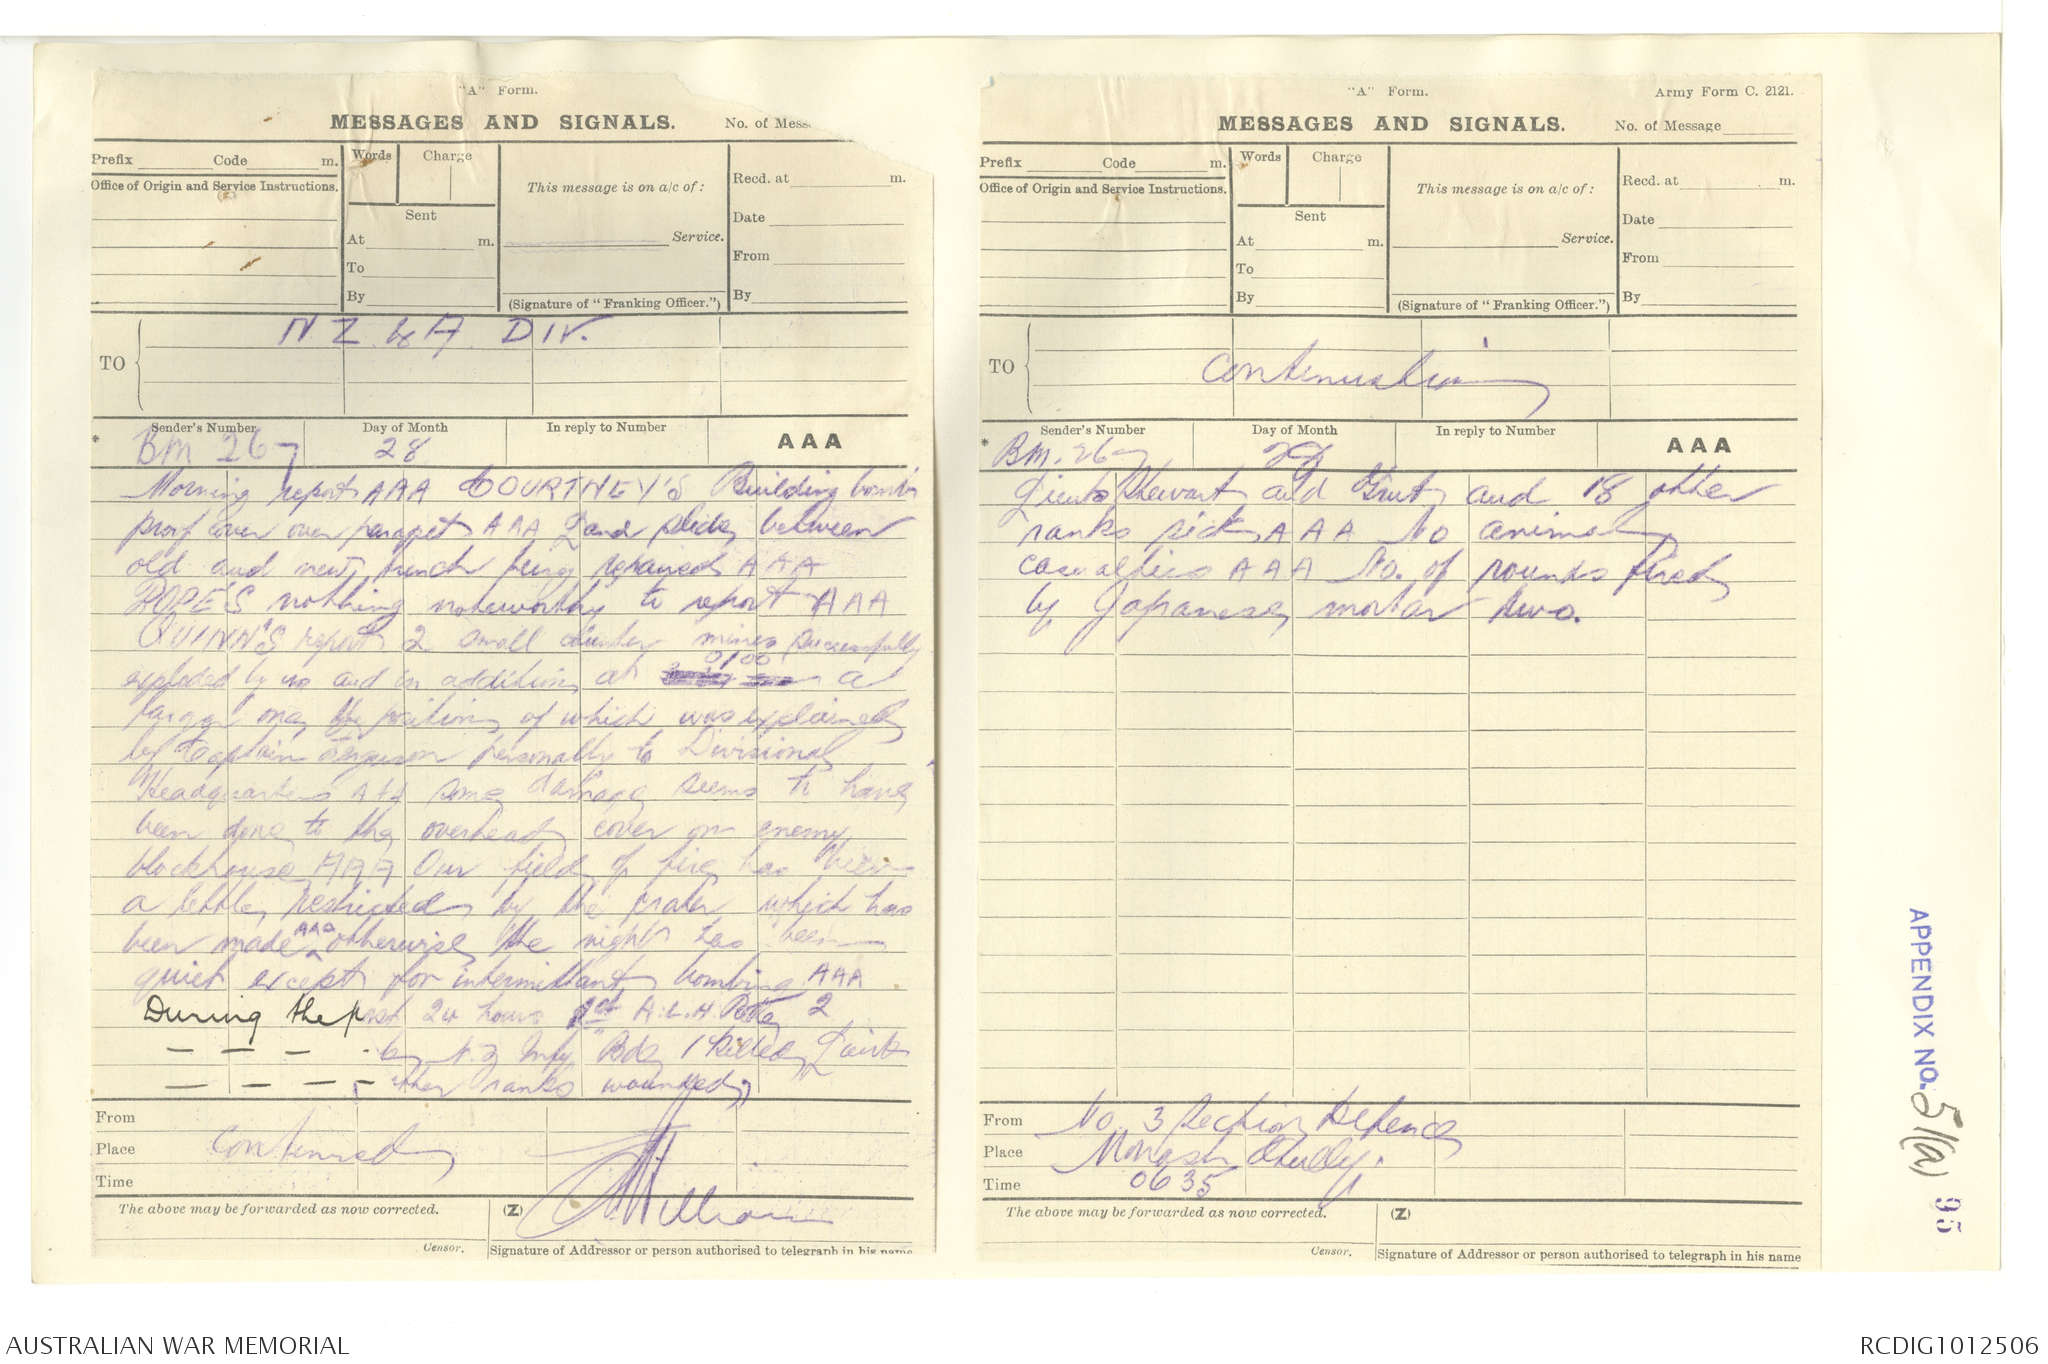 "A" Form.
MESSAGES AND SIGNALS.
No. of Mess
Prefix Code m.
Words Charge
This message is on a/c of:
Recd. at m.
Office of Origin and Service Instructions.
Sent
Date
At m.
Service.
From
To
By
(Signature of "Franking Officer.")
By
TO
N Z & A DIV.
Sender's Number
Day of Month
In reply to Number
AAA
BM 267
28
Morning report AAA COURTNEY'S Building bomb
proof cover over parapet AAA Land slide between
old and new trench being repaired AAA
POPE'S nothing noteworthy to report AAA
QUINN'S report 2 small mines successfully
exploded by us and in addition at 0100 a
larger one the position of which was explained
by Captain Ferguson personally to Divisional
Headquarters AAA some damage seems to have
been done to the overhead cover on enemy
blockhouse AAA Our field of fire has been
a little restricted by the crater which has
been made AAA otherwise the night has been
quiet except for intermittant bombing AAA
During the past 24 hours A.L.H. 2
N.Z Inf Bde 1 killed Lieut
other ranks wounded
From
Place
Continued
Time
The above may be forwarded as now corrected.
(Z)
Censor.
Signature of Addressor or person authorised to telegraph in his name
"A" Form.
Army Form C. 2121.
MESSAGES AND SIGNALS.
No. of Message
Prefix Code m.
Words Charge
This message is on a/c of:
Recd. at m.
Office of Origin and Service Instructions.
Sent
Date
At m.
Service.
From
To
By
(Signature of "Franking Officer.")
By
TO
Continuation
Sender's Number
Day of Month
In reply to Number
AAA
BM. 267
Lieuts Stewart and and 18 other
ranks sick AAA No animal
casualties AAA No. of rounds fired
by Japanese mortar two.
From
No 3 Section Defence
Place
Monash Gully.
Time
0635
The above may be forwarded as now corrected.
(Z)
Censor.
Signature of Addressor or person authorised to telegraph in his name
APPENDIX NO. 51(a) 95
AUSTRALIAN WAR MEMORIAL
RCDIG1012506